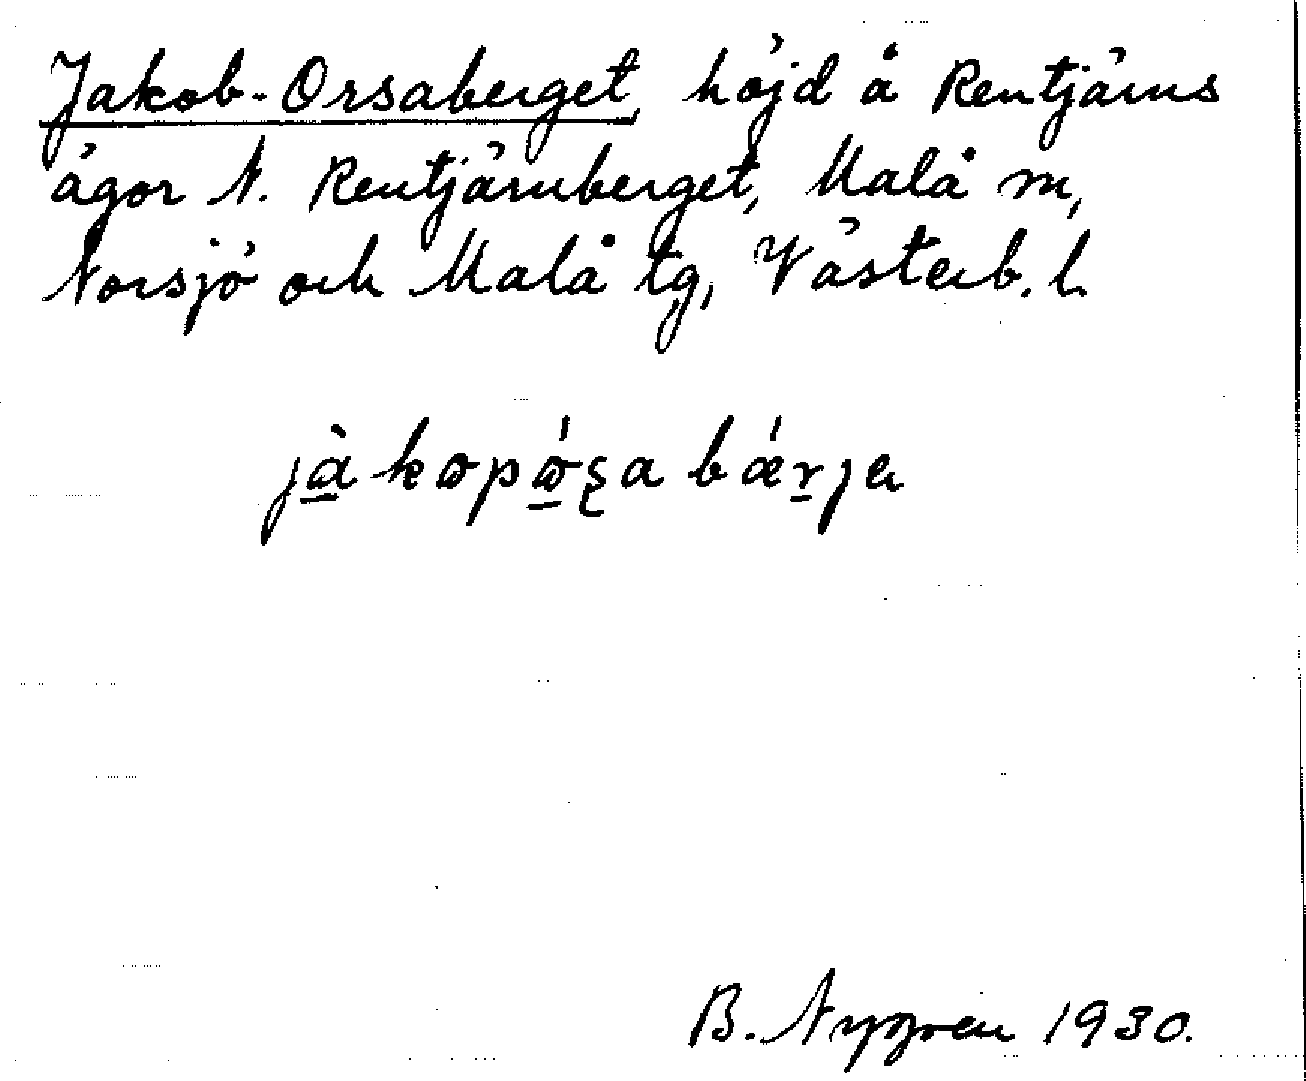 Jakob-Orsaberget, höjd å Rentjärns
ägor N. Rentjärnberget, Malå sn,
Norsjö och Malå tg, Västerb. l.
jà̱kɷpɷ̱́ʂabǽṟjɐ
B. Nygren 1930.